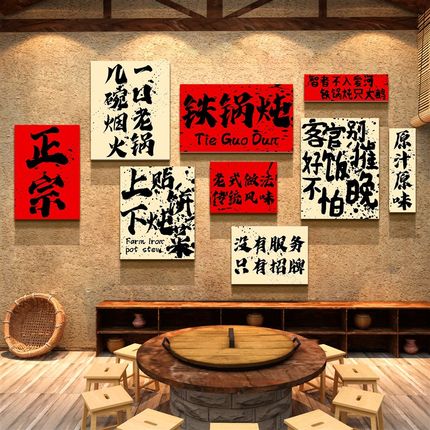 正宗
一口老锅
几碗烟火
铁锅炖
Tie Guo Dun
智者不入爱河
铁锅炖只大鹅
上贴饼
下炖菜
Farm iron
pot stew
老式做法
传统风味
客官别催
好饭
不怕晚
原汁原味
没有服务
只有招牌